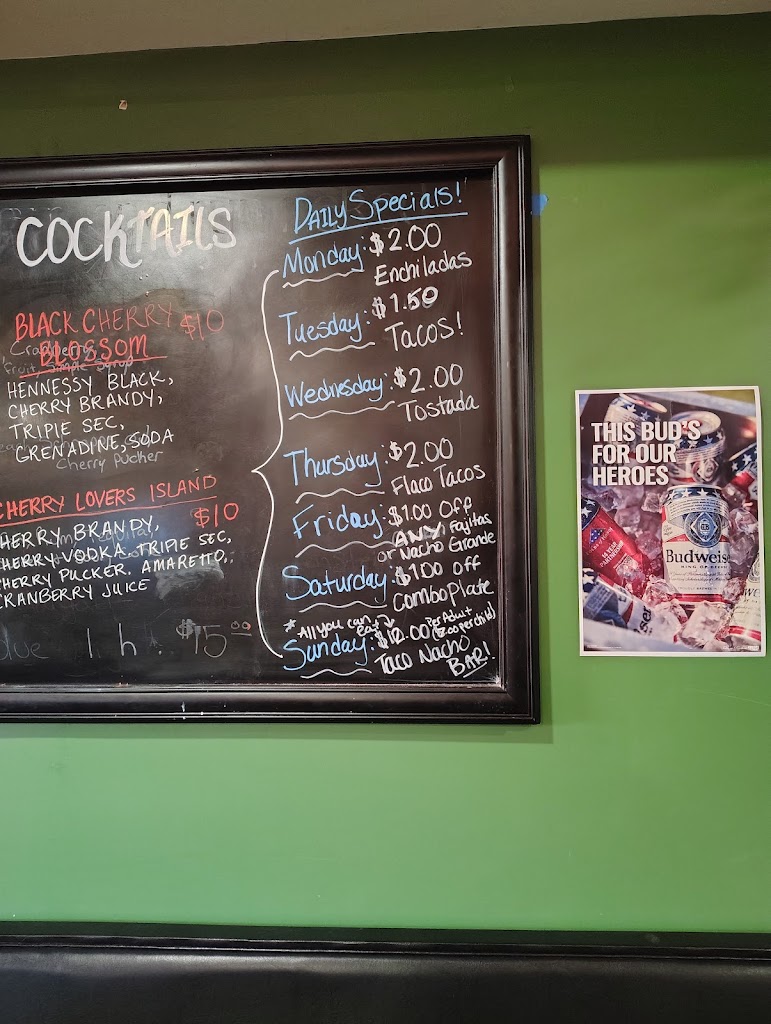 COCKTAILS
BLACK CHERRY $10
BLOSSOM
HENNESSY BLACK,
CHERRY BRANDY,
TRIPLE SEC,
GRENADINE, SODA
Cherry Pucker
CHERRY LOVERS ISLAND
$10
CHERRY BRANDY,
CHERRY VODKA, TRIPLE SEC,
CHERRY PUCKER, AMARETTO,
CRANBERRY JUICE
$15.00
DAILY SPECIALS!
Monday: $2.00
Enchiladas
Tuesday: $1.50
Tacos!
Wednesday: $2.00
Tostada
Thursday: $2.00
Flaco Tacos
Friday: $1.00 Off
ANY Fajitas
or Nacho Grande
Saturday: $1.00 Off
Combo Plate
*All you can eat
Sunday: $12.00 Per Adult
Taco Nacho
BAR!
THIS BUD'S
FOR OUR
HEROES
Budweiser
KING OF BEERS